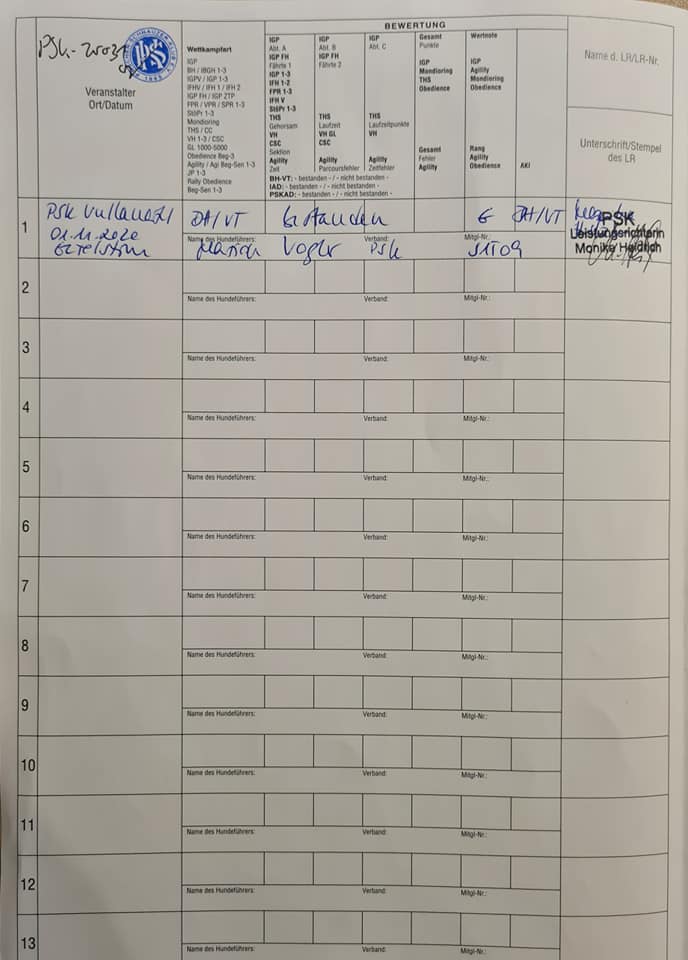 BEWERTUNG
SCHNAUZER
PSK
1895
Veranstalter
Ort/Datum
Wettkampfart
IGP
BH / IBGH 1-3
IGPV / IGP 1-3
IFHV / IFH 1 / IFH 2
IGP FH / IGP ZTP
FPR / VPR / SPR 1-3
StöPr 1-3
Mondioring
THS / CC
VH 1-3 / CSC
GL 1000-5000
Obedience Beg-3
Agility / Agi Beg-Sen 1-3
JP 1-3
Rally Obedience
Beg-Sen 1-3
IGP
Abt. A
IGP FH
Fährte 1
IGP 1-3
IFH 1-2
FPR 1-3
IFH V
StöPr 1-3
THS
Gehorsam
VH
CSC
Sektion
Agility
Zeit
IGP
Abt. B
IGP FH
Fährte 2
THS
Laufzeit
VH GL
CSC
Agility
Parcoursfehler
IGP
Abt. C
THS
Laufzeitpunkte
VH
Agility
Zeitfehler
Gesamt
Punkte
IGP
Mondioring
THS
Obedience
Gesamt
Fehler
Agility
Wertnote
IGP
Agility
Mondioring
Obedience
Rang
Agility
Obedience
AKI
BH-VT: - bestanden - / - nicht bestanden -
IAD: - bestanden - / - nicht bestanden -
PSKAD: - bestanden - / - nicht bestanden -
Name d. LR/LR-Nr.
Unterschrift/Stempel
des LR
1
PSK
01.11.2020
BH/VT
BH/VT
Name des Hundeführers: Verband: Mitgl-Nr.:
Vogler PSK
PSK
Leistungsrichterin
Monika Heidrich
2
Name des Hundeführers: Verband: Mitgl-Nr.:
3
Name des Hundeführers: Verband: Mitgl-Nr.:
4
Name des Hundeführers: Verband: Mitgl-Nr.:
5
Name des Hundeführers: Verband: Mitgl-Nr.:
6
Name des Hundeführers: Verband: Mitgl-Nr.:
7
Name des Hundeführers: Verband: Mitgl-Nr.:
8
Name des Hundeführers: Verband: Mitgl-Nr.:
9
Name des Hundeführers: Verband: Mitgl-Nr.:
10
Name des Hundeführers: Verband: Mitgl-Nr.:
11
Name des Hundeführers: Verband: Mitgl-Nr.:
12
Name des Hundeführers: Verband: Mitgl-Nr.:
13
Name des Hundeführers: Verband: Mitgl-Nr.: